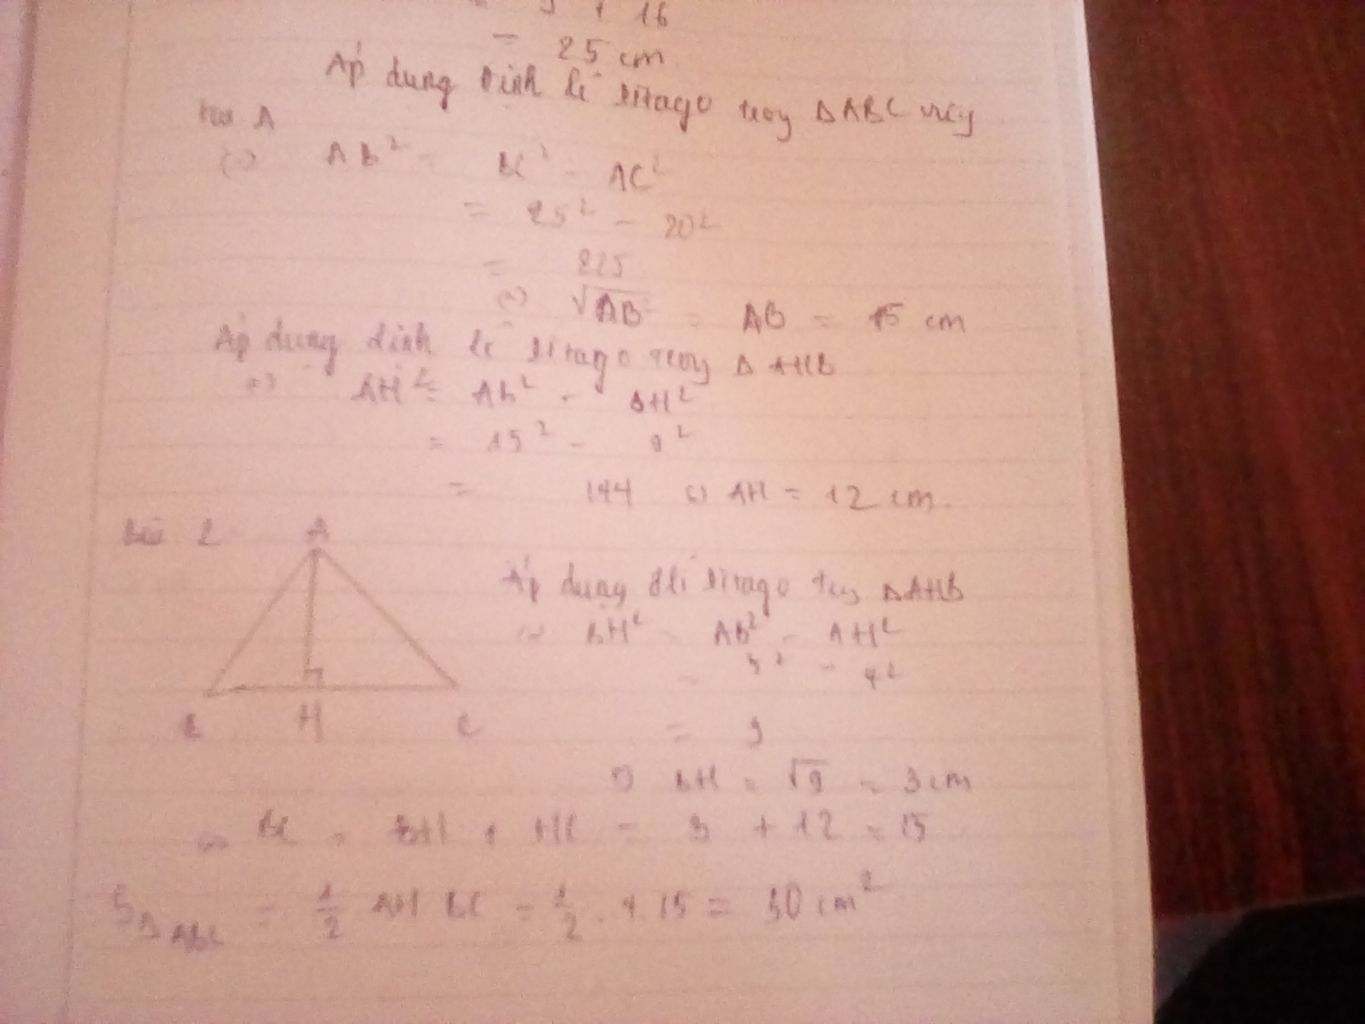 = 9 + 16
= 25 cm
Áp dụng định lí Pitago trong ΔABC vuông
tại A
=> AB² = BC² - AC²
= 25² - 20²
= 225
=> √AB² = AB = 15 cm
Áp dụng định lí Pitago trong Δ AHB
=> AH² = AB² - BH²
= 15² - 9²
= 144 => AH = 12 cm.
Bài 2
A
B H C
Áp dụng đlí Pitago trong ΔAHB
=> BH² = AB² - AH²
= 5² - 4²
= 9
=> BH = √9 = 3 cm
=> BC = BH + HC = 3 + 12 = 15
S Δ ABC = 1/2 AH BC = 1/2 . 4 . 15 = 30 cm²